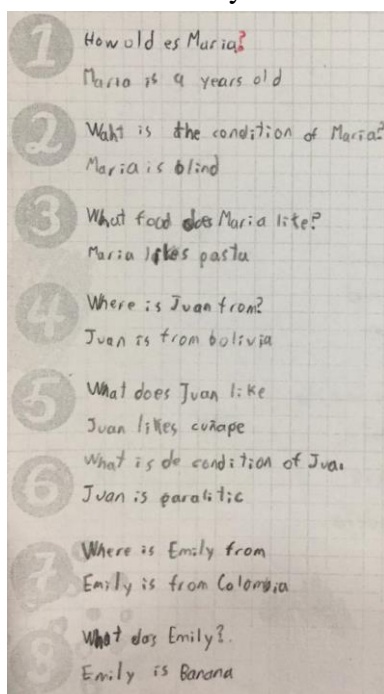 1
How old es Maria?
Maria is 9 years old
2
Waht is the condition of Maria?
Maria is blind
3
What food does Maria like?
Maria likes pasta
4
Where is Juan from?
Juan is from bolivia
5
What does Juan like
Juan likes cuñape
6
What is de condition of Juan
Juan is paralitic
7
Where is Emily from
Emily is from Colombia
8
What dos Emily?.
Emily is Banana